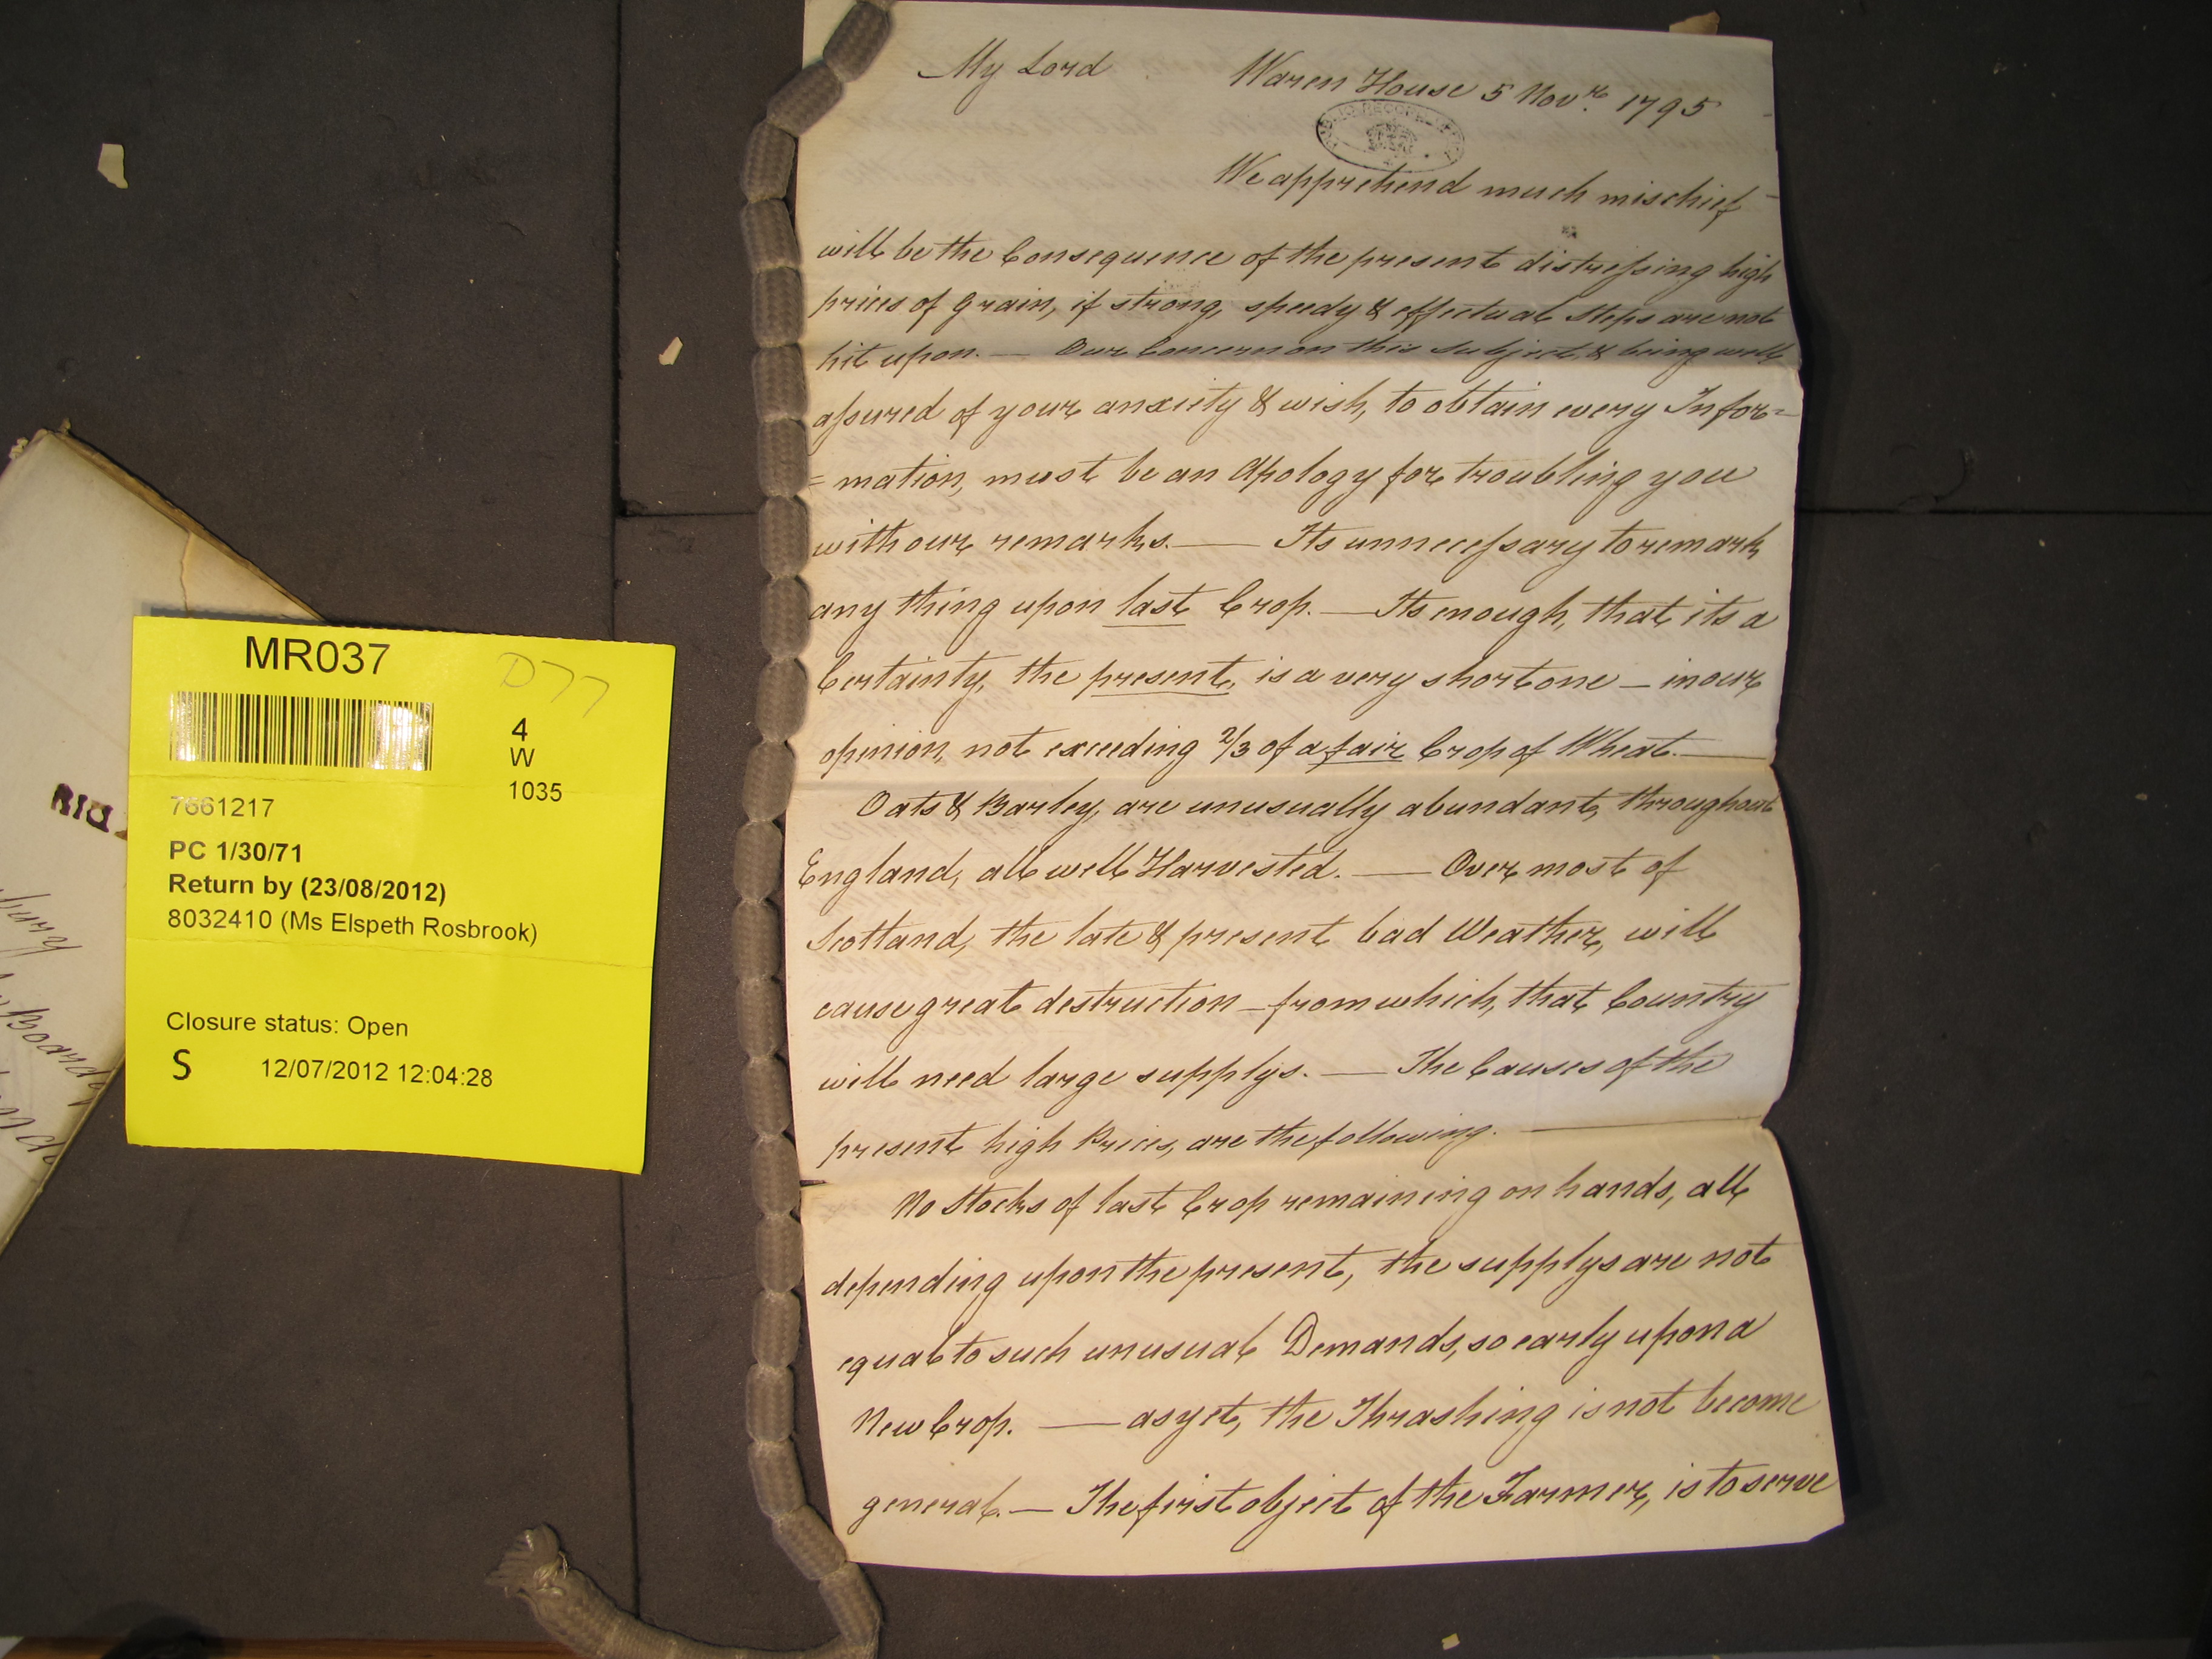 My Lord Waren House 5 Novr. 1795
We apprehend much mischief
will be the Consequence of the present distressing high
prices of grain, if strong, speedy & effectual Steps are not
hit upon. — Our Concern on this subject & being well
assured of your anxiety & wish, to obtain every Infor=
= mation, must be an Apology for troubling you
with our remarks. — Its unnecessary to remark
any thing upon last Crop. — Its enough, that its a
Certainty, the present, is a very short one — in our
opinion, not exceeding 2/3 of a fair Crop of Wheat. —
Oats & Barley, are unusually abundant, throughout
England, all well Harvested. — Over most of
Scotland, the late & present bad Weather, will
cause great destruction — from which, that Country
will need large supplys. — The Causes of the
present high Prices, are the following. —
No Stocks of last Crop remaining on hands, all
depending upon the present, the supplys are not
equal to such unusual Demands, so early upon a
New Crop. — as yet, the Thrashing is not become
general. — The first object of the Farmer, is to serve
MR037
D77
4
W
1035
7661217
PC 1/30/71
Return by (23/08/2012)
8032410 (Ms Elspeth Rosbrook)
Closure status: Open
S 12/07/2012 12:04:28